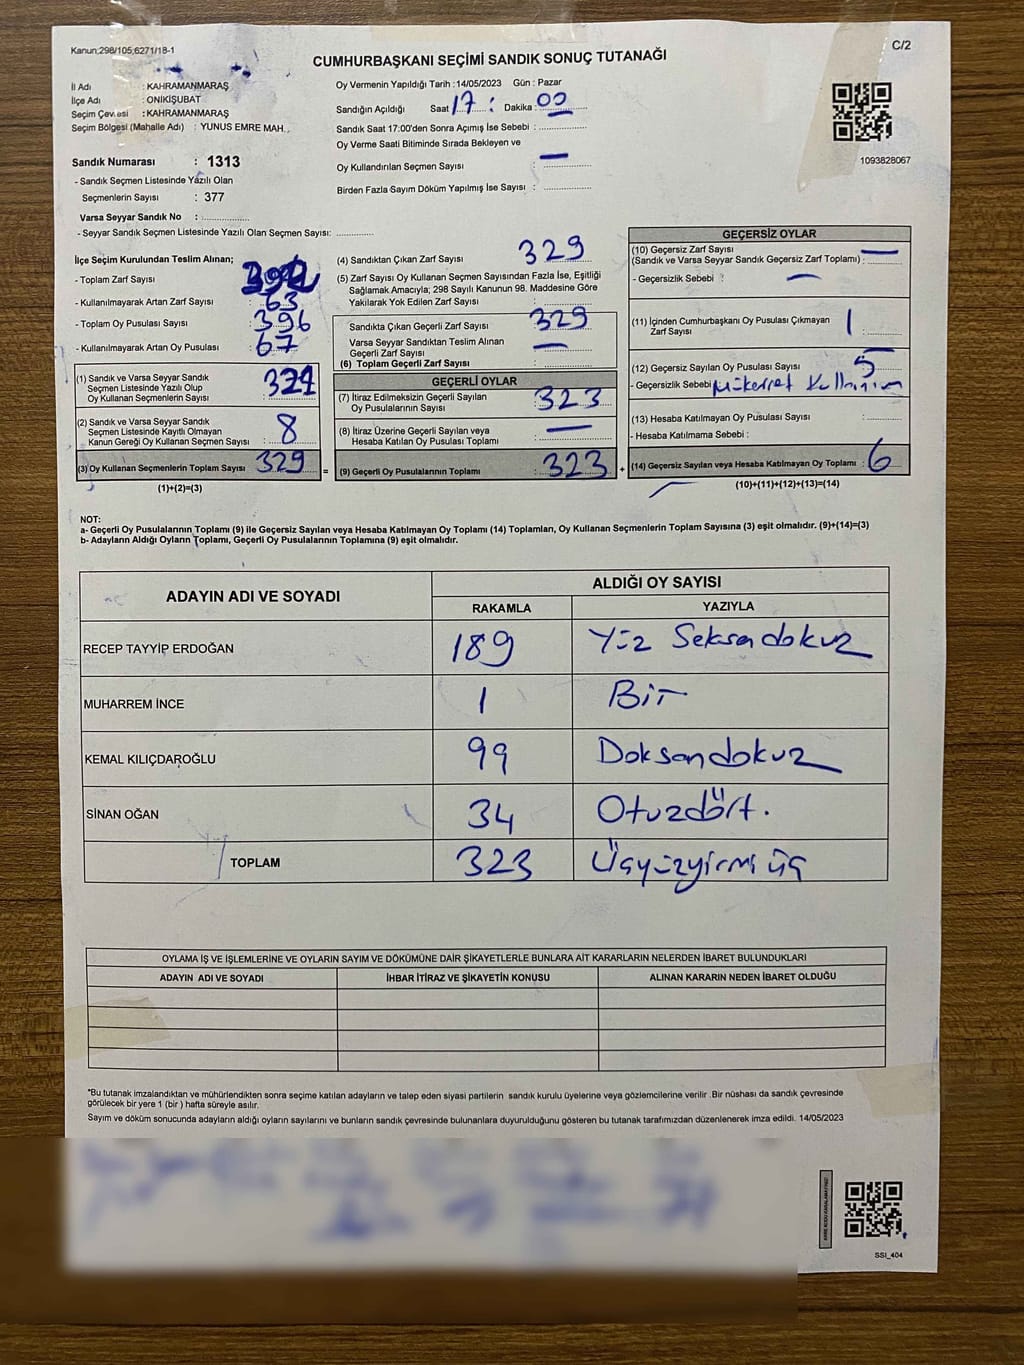 Kanun;298/105;6271/18-1
C/2
CUMHURBAŞKANI SEÇİMİ SANDIK SONUÇ TUTANAĞI
İl Adı : KAHRAMANMARAŞ
İlçe Adı : ONİKİŞUBAT
Seçim Çevresi : KAHRAMANMARAŞ
Seçim Bölgesi (Mahalle Adı) : YUNUS EMRE MAH.
Sandık Numarası : 1313
- Sandık Seçmen Listesinde Yazılı Olan
Seçmenlerin Sayısı : 377
Varsa Seyyar Sandık No :
- Seyyar Sandık Seçmen Listesinde Yazılı Olan Seçmen Sayısı:
Oy Vermenin Yapıldığı Tarih :14/05/2023 Gün : Pazar
Sandığın Açıldığı Saat 17 : Dakika : 00
Sandık Saat 17:00'den Sonra Açımış İse Sebebi :
Oy Verme Saati Bitiminde Sırada Bekleyen ve
Oy Kullandırılan Seçmen Sayısı : —
Birden Fazla Sayım Döküm Yapılmış İse Sayısı :
1093828067
İlçe Seçim Kurulundan Teslim Alınan;
- Toplam Zarf Sayısı :
- Kullanılmayarak Artan Zarf Sayısı : 63
- Toplam Oy Pusulası Sayısı : 396
- Kullanılmayarak Artan Oy Pusulası : 67
(1) Sandık ve Varsa Seyyar Sandık
Seçmen Listesinde Yazılı Olup
Oy Kullanan Seçmenlerin Sayısı : 321
(2) Sandık ve Varsa Seyyar Sandık
Seçmen Listesinde Kayıtlı Olmayan
Kanun Gereği Oy Kullanan Seçmen Sayısı : 8
(3) Oy Kullanan Seçmenlerin Toplam Sayısı : 329
(1)+(2)=(3)
(4) Sandıktan Çıkan Zarf Sayısı : 329
(5) Zarf Sayısı Oy Kullanan Seçmen Sayısından Fazla İse, Eşitliği
Sağlamak Amacıyla; 298 Sayılı Kanunun 98. Maddesine Göre
Yakılarak Yok Edilen Zarf Sayısı :
Sandıkta Çıkan Geçerli Zarf Sayısı : 329
Varsa Seyyar Sandıktan Teslim Alınan
Geçerli Zarf Sayısı : —
(6) Toplam Geçerli Zarf Sayısı :
GEÇERLİ OYLAR
(7) İtiraz Edilmeksizin Geçerli Sayılan
Oy Pusulalarının Sayısı : 323
(8) İtiraz Üzerine Geçerli Sayılan veya
Hesaba Katılan Oy Pusulası Toplamı : —
=
(9) Geçerli Oy Pusulalarının Toplamı : 323
+
GEÇERSİZ OYLAR
(10) Geçersiz Zarf Sayısı
(Sandık ve Varsa Seyyar Sandık Geçersiz Zarf Toplamı) : —
- Geçersizlik Sebebi : —
(11) İçinden Cumhurbaşkanı Oy Pusulası Çıkmayan
Zarf Sayısı : 1
(12) Geçersiz Sayılan Oy Pusulası Sayısı : 5
- Geçersizlik Sebebi : Mükerret Kullanım
(13) Hesaba Katılmayan Oy Pusulası Sayısı :
- Hesaba Katılmama Sebebi :
(14) Geçersiz Sayılan veya Hesaba Katılmayan Oy Toplamı : 6
(10)+(11)+(12)+(13)=(14)
NOT:
a- Geçerli Oy Pusulalarının Toplamı (9) ile Geçersiz Sayılan veya Hesaba Katılmayan Oy Toplamı (14) Toplamları, Oy Kullanan Seçmenlerin Toplam Sayısına (3) eşit olmalıdır. (9)+(14)=(3)
b- Adayların Aldığı Oyların Toplamı, Geçerli Oy Pusulalarının Toplamına (9) eşit olmalıdır.
ADAYIN ADI VE SOYADI
ALDIĞI OY SAYISI
RAKAMLA YAZIYLA
RECEP TAYYİP ERDOĞAN 189 Yüz Seksendokuz
MUHARREM İNCE 1 Bir
KEMAL KILIÇDAROĞLU 99 Doksandokuz
SİNAN OĞAN 34 Otuzdört.
TOPLAM 323 Üçyüzyirmi üç
OYLAMA İŞ VE İŞLEMLERİNE VE OYLARIN SAYIM VE DÖKÜMÜNE DAİR ŞİKAYETLERLE BUNLARA AİT KARARLARIN NELERDEN İBARET BULUNDUKLARI
ADAYIN ADI VE SOYADI İHBAR İTİRAZ VE ŞİKAYETİN KONUSU ALINAN KARARIN NEDEN İBARET OLDUĞU
*Bu tutanak imzalandıktan ve mühürlendikten sonra seçime katılan adayların ve talep eden siyasi partilerin sandık kurulu üyelerine veya gözlemcilerine verilir .Bir nüshası da sandık çevresinde
görülecek bir yere 1 (bir ) hafta süreyle asılır.
Sayım ve döküm sonucunda adayların aldığı oyların sayılarını ve bunların sandık çevresinde bulunanlara duyurulduğunu gösteren bu tutanak tarafımızdan düzenlenerek imza edildi. 14/05/2023
SSI_404